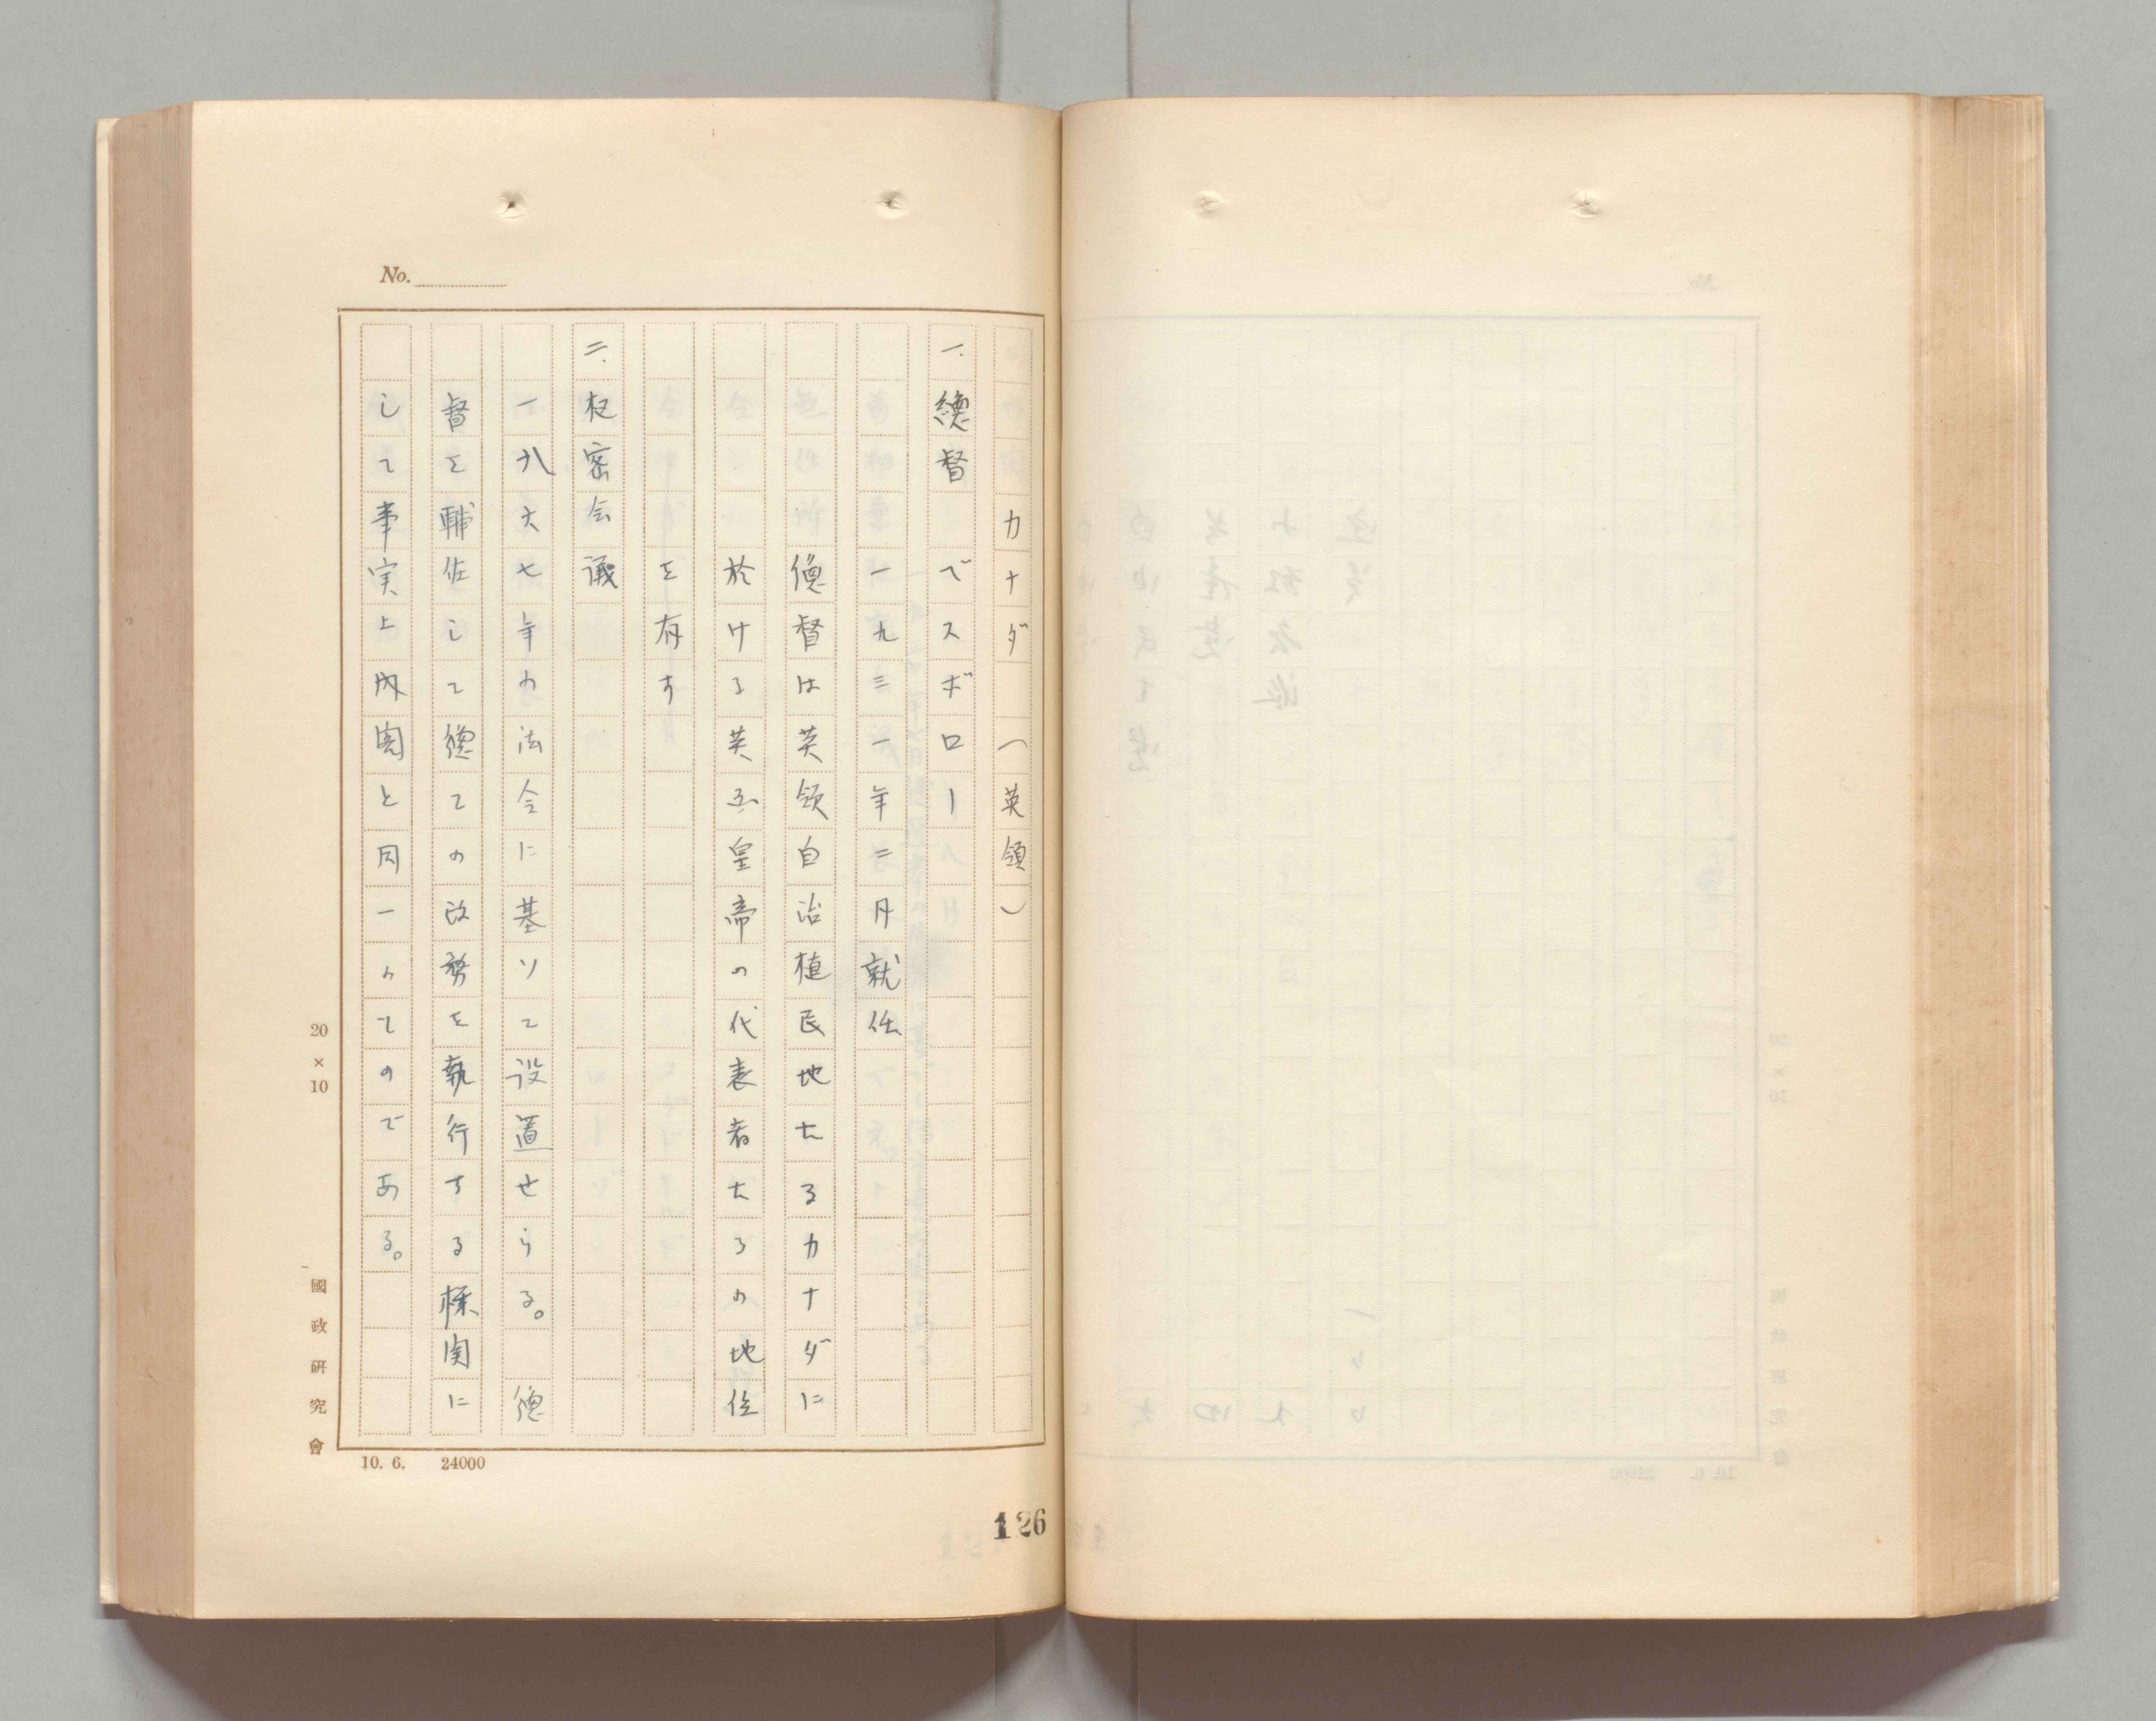 No.
カナダ （英領）
一. 總督 ベスボロー
一九三一年二月就任
總督は英領自治植民地たるカナダに
於ける英帝皇帝の代表者たるの地位
を有す
二. 枢密会議
一八六七年の法令に基ソて設置せらる。總
督を輔佐して總ての政務を執行する機関に
して事実上内閣と同一のものである。
20×10
國政研究會
10. 6. 24000
126